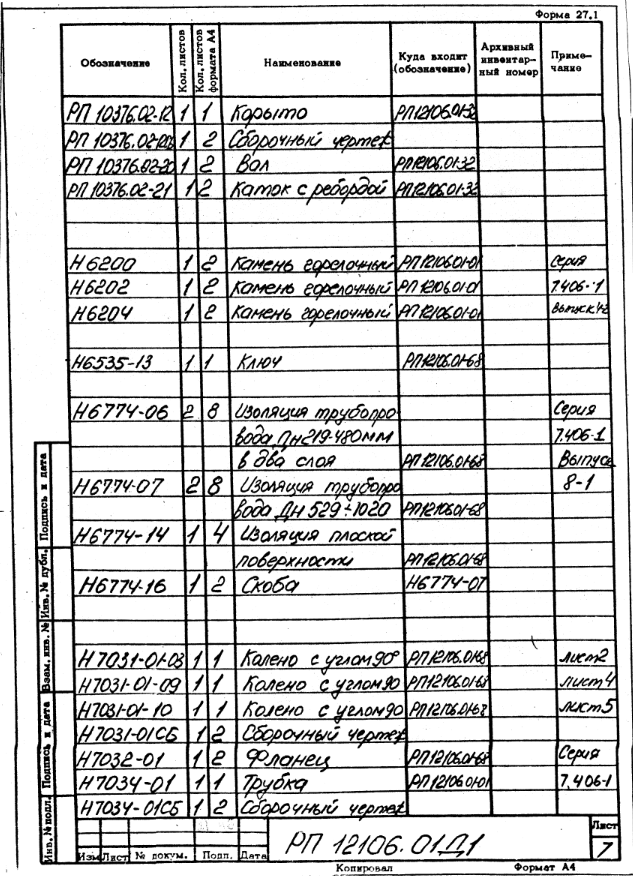 Форма 27.1
Обозначение Кол. листов Кол. листов формата А4 Наименование Куда входит (обозначение) Архивный инвентар- ный номер Приме- чание
РП 10376.02-12 1 1 Корыто РП12106.01-32
РП 10376.02-20СБ 1 2 Сборочный чертеж
РП 10376.02-20 1 2 Вал РП12106.01-32
РП 10376.02-21 1 2 Каток с ребордой РП12106.01-32
Н6200 1 2 Камень горелочный РП12106.01-01 Серия
Н6202 1 2 Камень горелочный РП12106.01-01 7.406-1
Н6204 1 2 Камень горелочный РП12106.01-01 Выпуск
Н6535-13 1 1 Ключ РП12106.01-68
Н6774-06 2 8 Изоляция трубопро Серия
вода Дн219-480мм 7.406-1
в два слоя РП12106.01-68 Выпуск
Н6774-07 2 8 Изоляция трубопро 8-1
вода ДН 529÷1020 РП12106.01-68
Н6774-14 1 4 Изоляция плоской
поверхности РП12106.01-68
Н6774-16 1 2 Скоба Н6774-07
Н7031-01-03 1 1 Колено с углом 90° РП12106.01-68 лист2
Н7031-01-09 1 1 Колено с углом 90 РП12106.01-68 лист4
Н7031-01-10 1 1 Колено с углом 90 РП12106.01-68 лист5
Н7031-01СБ 1 2 Сборочный чертеж
Н7032-01 1 2 Фланец РП12106.01-68 Серия
Н7034-01 1 1 Трубка РП12106.01-01 7.406-1
Н7034-01СБ 1 2 Сборочный чертеж
Инв. № подл. Подпись и дата Взам. инв. № Инв. № дубл. Подпись и дата
Изм Лист № докум. Подп. Дата РП 12106.01Д1 Лист
7
Копировал Формат А4